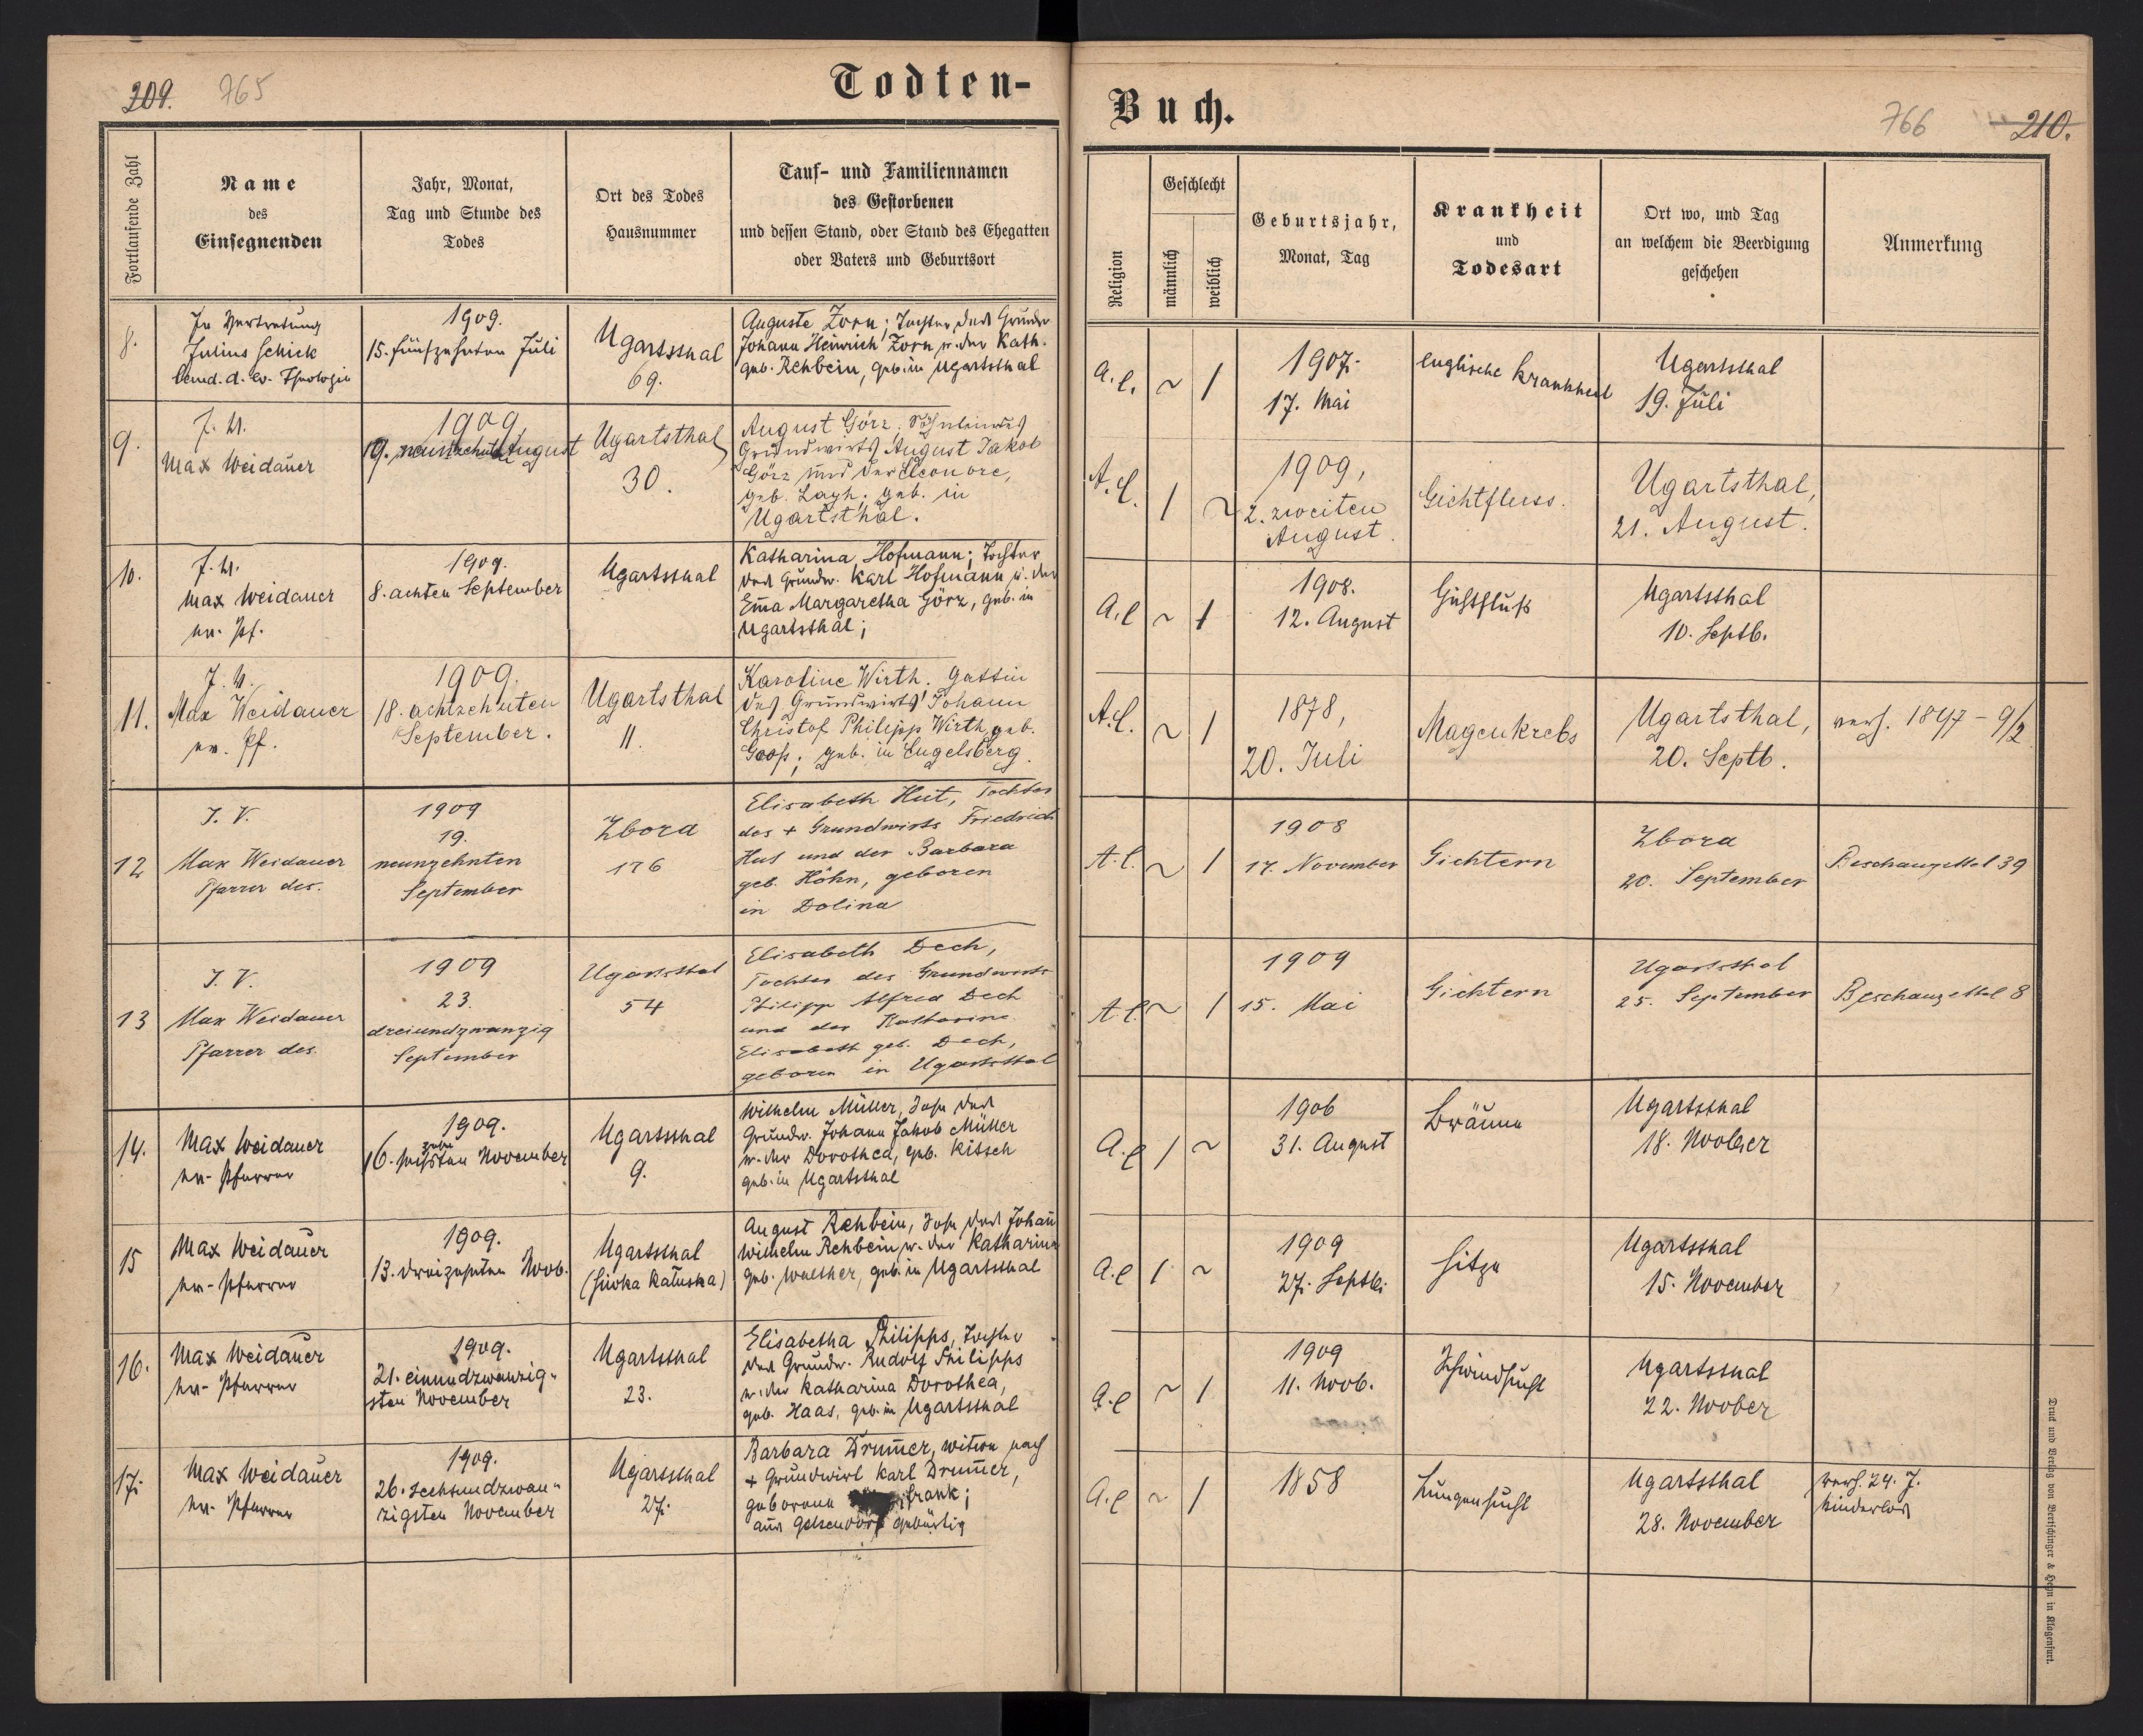 209. 765
Todten-
Fortlaufende Zahl
Name
des
Einsegnenden
Jahr, Monat,
Tag und Stunde des
Todes
Ort des Todes
Hausnummer
Tauf- und Familiennamen
des Gestorbenen
und dessen Stand, oder Stand des Ehegatten
oder Vaters und Geburtsort
8.
In Vertretung
Julius Schick
Cand. d. ev. Theologie
1909.
15. fünfzehnten Juli
Ugartsthal
69.
Auguste Zorn; Tochter des Grundw
Johann Heinrich Zorn u. der Kath.
geb. Rehbein, geb. in Ugartsthal
9.
J. V.
Max Weidauer
1909,
19. neunzehnten August
Ugartsthal
30.
August Görz, Söhnlein des
Grundwirts August Jakob
Görz und der Eleonore,
geb. Layh; geb. in
Ugartsthal.
10.
J. V.
Max Weidauer
ev. Pf.
1909.
8. achten September
Ugartsthal
Katharina Hofmann; Tochter
des Grundw. Karl Hofmann u. der
Em̄a Margaretha Görz, geb. in
Ugartsthal;
11.
J. V.
Max Weidauer
ev. Pf.
1909.
18. achtzehnten
September.
Ugartsthal
11.
Karoline Wirth. Gattin
des Grundwirts Johann
Christof Philipp Wirth, geb.
Gooß; geb. in Engelsberg.
12
J. V.
Max Weidauer
Pfarrer des.
1909
19.
neunzehnten
September
Zbora
176
Elisabeth Hut, Tochter
des + Grundwirts Friedrich
Hut und der Barbara
geb. Höhn, geboren
in Dolina
13
J. V.
Max Weidauer
Pfarrer des.
1909
23.
dreiundzwanzig
September
Ugartsthal
54
Elisabeth Dech,
Tochter des Grundwirts
Philipp Alfred Dech
und der Katharina
Elisabeth geb. Dech,
geboren in Ugartsthal
14.
Max Weidauer
ev. Pfarrer
1909.
16. sechzehnten November
Ugartsthal
9.
Wilhelm Müller, Sohn des
Grundw. Johann Jakob Müller
u. der Dorothea, geb. Kitsch
geb. in Ugartsthal
15
Max Weidauer
ev. Pfarrer
1909.
13. dreizehnten Novb.
Ugartsthal
(Siwka Kaluska)
August Rehbein, Sohn des Johan̄
Wilhelm Rehbein u. der Katharina
geb. Walther, geb. in Ugartsthal
16.
Max Weidauer
ev. Pfarrer
1909.
21. einundzwanzig-
sten November
Ugartsthal
23.
Elisabetha Philipps, Tochter
des Grundw. Rudolf Philipps
u. der Katharina Dorothea,
geb. Haas, geb. in Ugartsthal
17.
Max Weidauer
ev. Pfarrer
1909.
26. sechsundzwan-
zigsten November
Ugartsthal
27.
Barbara Drum̄er, Witwe nach
+ Grundwirt Karl Drum̄er,
geborene Frank;
aus Gelsendorf gebürtig
Buch.
766 210.
Religion
Geschlecht
männlich
weiblich
Geburtsjahr,
Monat, Tag
Krankheit
und
Todesart
Ort wo, und Tag
an welchem die Beerdigung
geschehen
Anmerkung
A.C. ~ 1
1907.
17. Mai
Englische Krankheit
Ugartsthal
19. Juli
A.C. 1 ~
1909,
2. zweiten
August.
Gichtfluss.
Ugartsthal,
21. August.
A.C ~ 1
1908.
12. August
Gichtfluß
Ugartsthal
10. Septb.
A.C. ~ 1
1878,
20. Juli
Magenkrebs
Ugartsthal,
20. Septb.
verh. 1897 - 9/2
A.C. ~ 1
1908
17. November
Gichtern
Zbora
20. September
Beschauzettel 39
A.C. ~ 1
1909
15. Mai
Gichtern
Ugartsthal
25. September
Beschauzettel 8
A.C 1 ~
1906
31. August
Bräune
Ugartsthal
18. November
A.C 1 ~
1909
27. Septb.
Hitze
Ugartsthal
15. November
A.C ~ 1
1909
11. Novb.
Schwindsucht
Ugartsthal
22. November
A.C ~ 1
1858
Lungensucht
Ugartsthal
28. November
verh. 24. J.
kinderlos
Druck und Verlag von Bertschinger & Heyn in Klagenfurt.